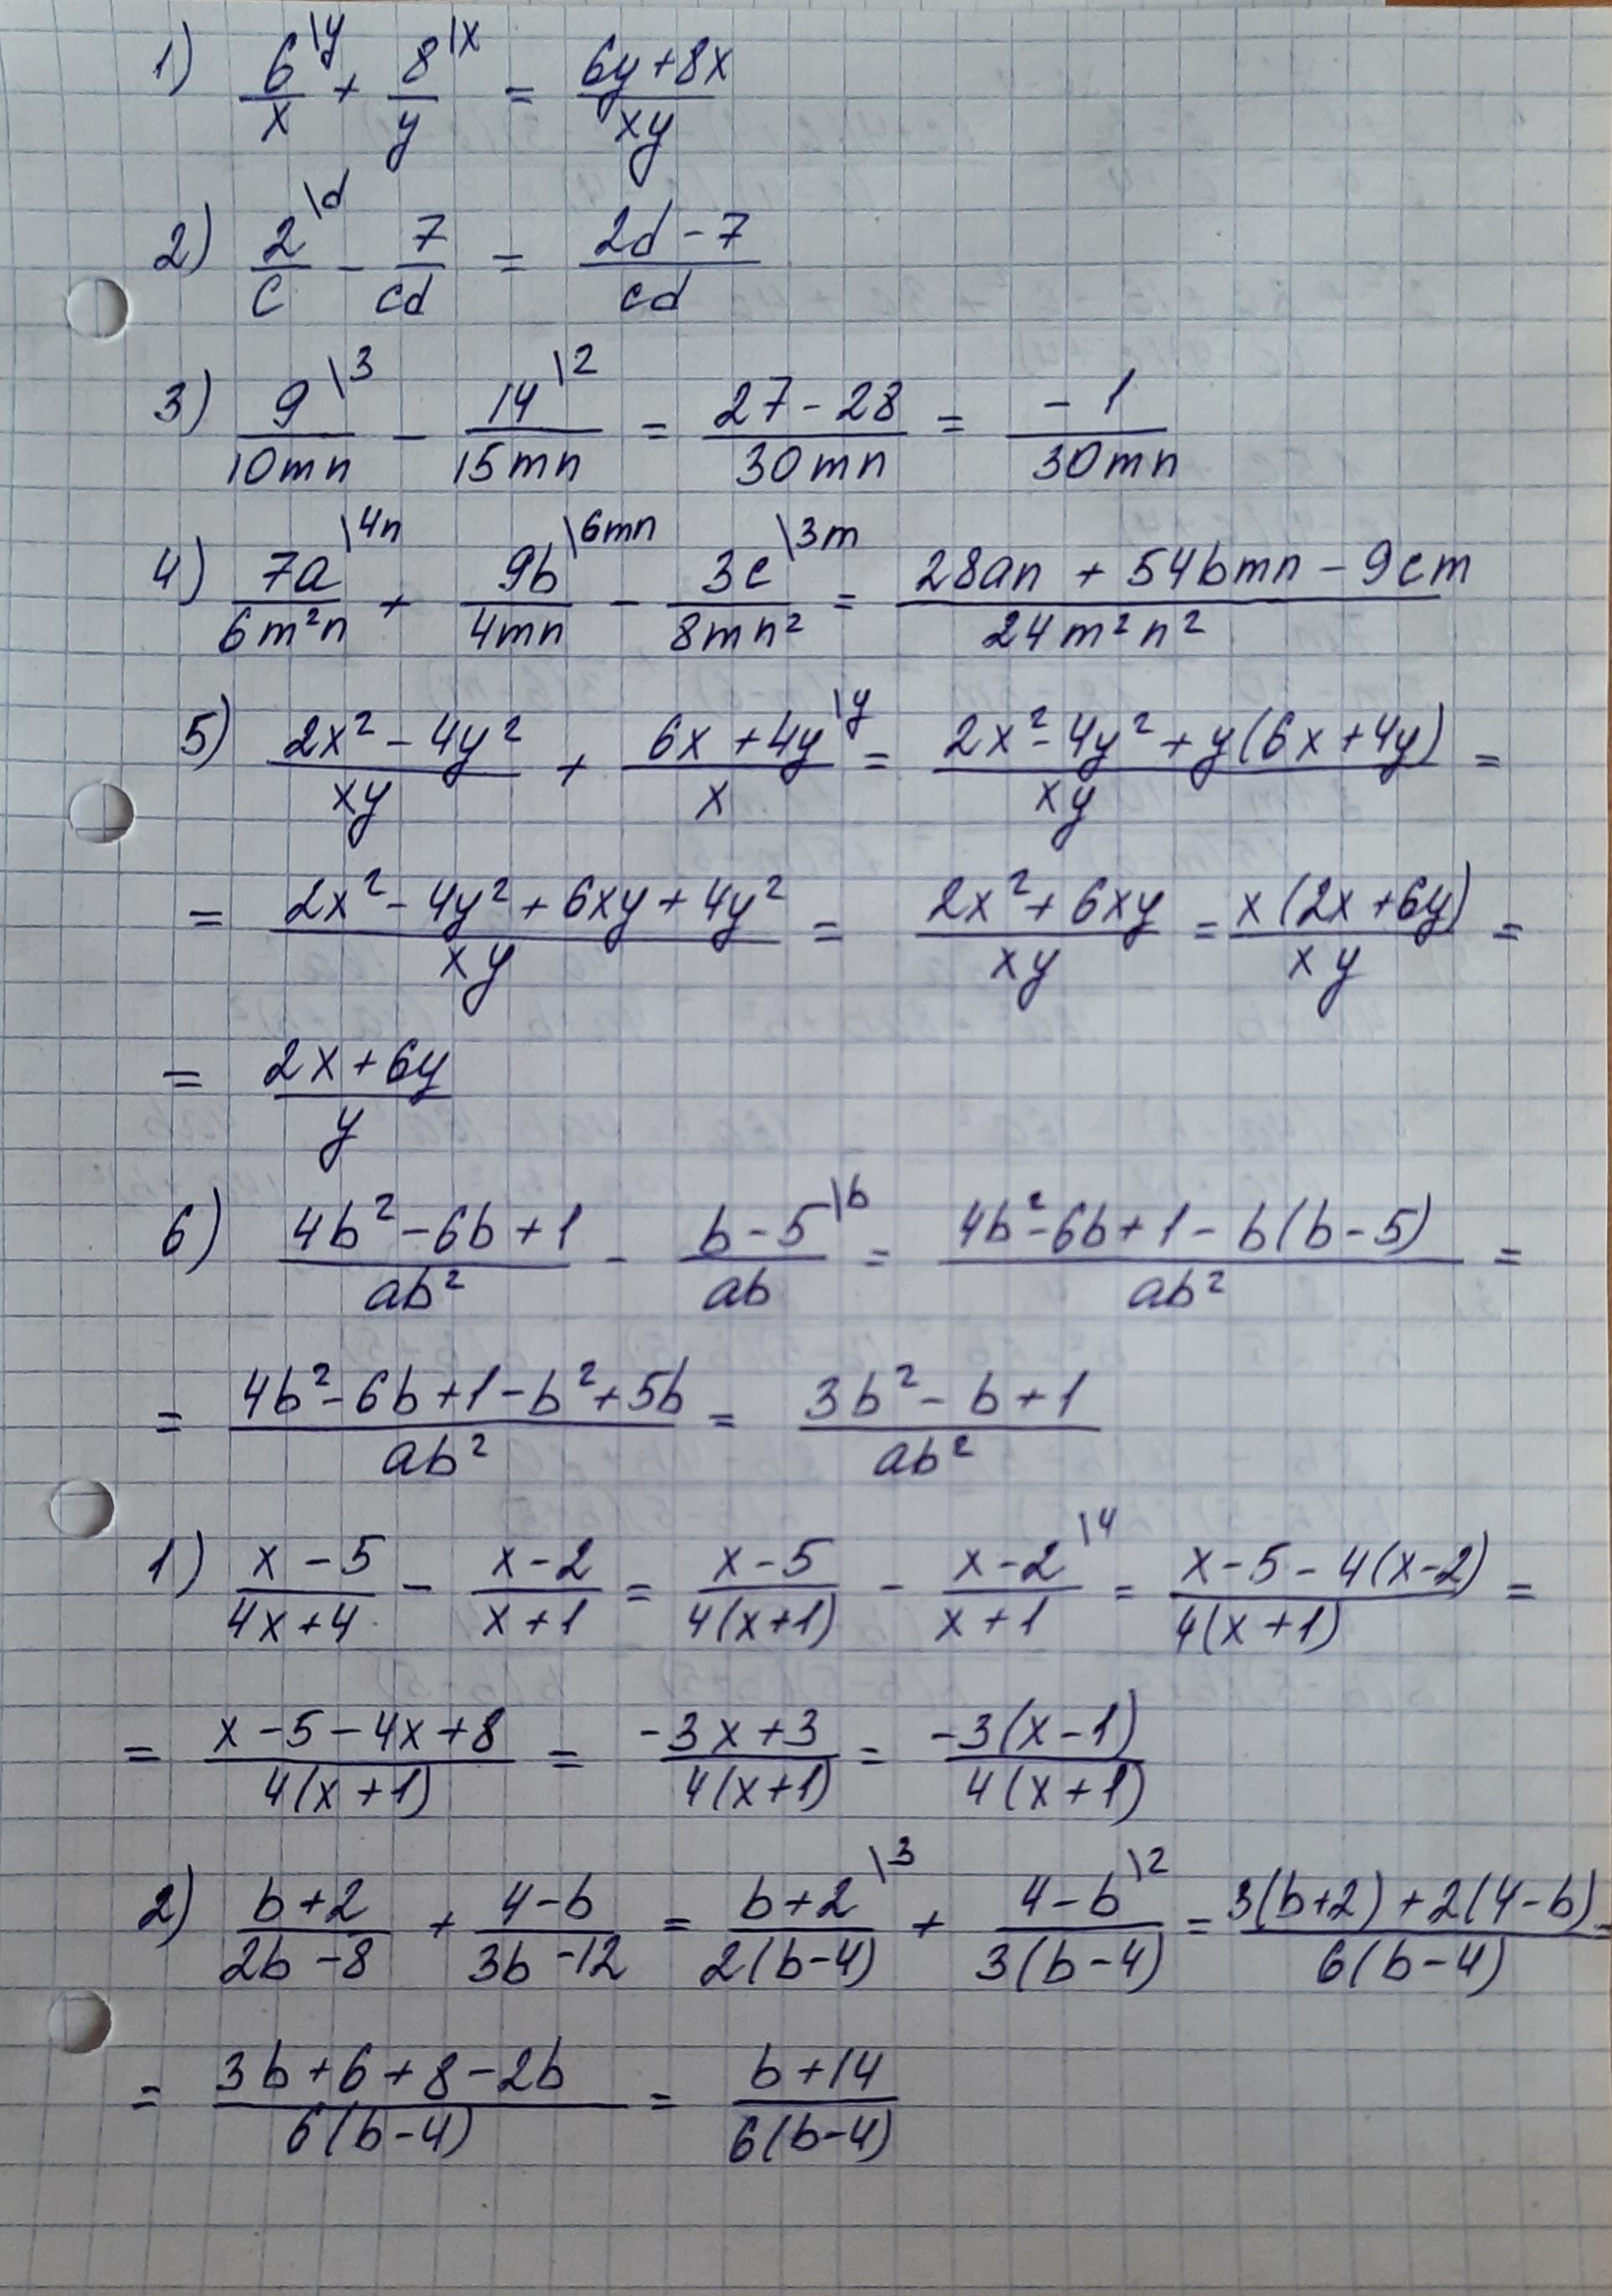 1) 6\y/x + 8\x/y = (6y+8x)/xy
2) 2\d/c - 7/cd = (2d-7)/cd
3) 9\3/10mn - 14\2/15mn = (27-28)/30mn = -1/30mn
4) 7a\4n/6m²n + 9b\6mn/4mn - 3c\3m/8mn² = (28an + 54bmn - 9cm)/24m²n²
5) (2x²-4y²)/xy + (6x+4y)\y/x = (2x²-4y²+y(6x+4y))/xy =
= (2x²-4y²+6xy+4y²)/xy = (2x²+6xy)/xy = x(2x+6y)/xy =
= (2x+6y)/y
6) (4b²-6b+1)/ab² - (b-5)\b/ab = (4b²-6b+1-b(b-5))/ab² =
= (4b²-6b+1-b²+5b)/ab² = (3b²-b+1)/ab²
1) (x-5)/(4x+4) - (x-2)/(x+1) = (x-5)/4(x+1) - (x-2)\4/(x+1) = (x-5-4(x-2))/4(x+1) =
= (x-5-4x+8)/4(x+1) = (-3x+3)/4(x+1) = -3(x-1)/4(x+1)
2) (b+2)/(2b-8) + (4-b)/(3b-12) = (b+2)\3/2(b-4) + (4-b)\2/3(b-4) = (3(b+2)+2(4-b))/6(b-4) =
= (3b+6+8-2b)/6(b-4) = (b+14)/6(b-4)